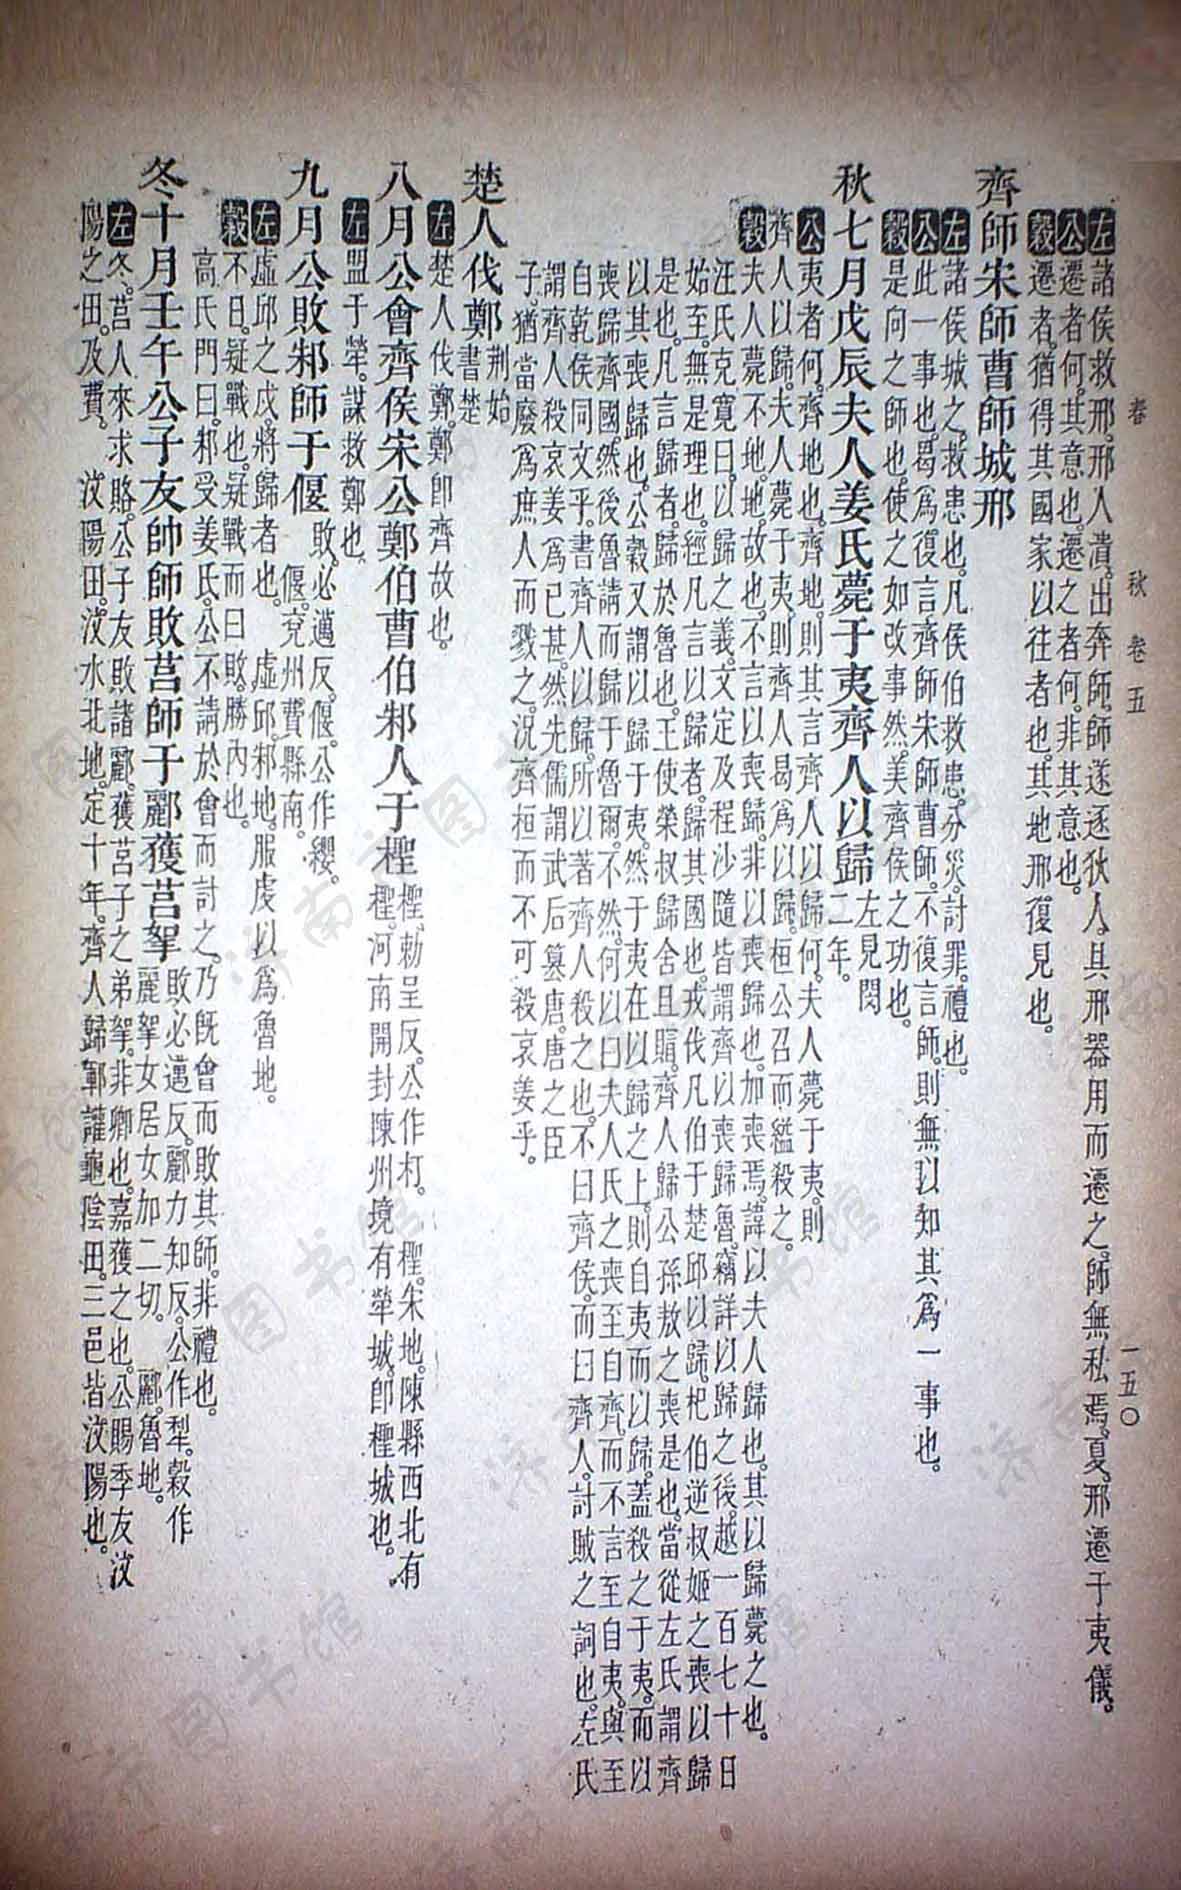 春秋卷五
一五〇
左諸侯救邢。邢人潰。出奔師。師遂逐狄人。具邢器用而遷之。師無私焉。夏。邢遷于夷儀。
公遷者何。其意也。遷之者何。非其意也。
穀遷者。猶得其國家以往者也。其地邢復見也。
齊師宋師曹師城邢
左諸侯城之。救患也。凡侯伯救患。分災。討罪。禮也。
公此一事也。曷爲復言齊師宋師曹師。不復言師。則無以知其爲一事也。
穀是向之師也。使之如改事然。美齊侯之功也。
秋七月戊辰夫人姜氏薨于夷齊人以歸左見閔二年。
公夷者何。齊地也。齊地。則其言齊人以歸何。夫人薨于夷。則
齊人以歸。夫人薨于夷。則齊人曷爲以歸。桓公召而縊殺之。
穀夫人薨不地。地。故也。不言以喪歸。非以喪歸也。加喪焉。諱以夫人歸也。其以歸薨之也。
汪氏克寬曰。以歸之義。文定及程沙隨皆謂齊以喪歸魯。竊詳以歸之後。越一百七十日
始至。無是理也。經凡言以歸者。歸其國也。戎伐凡伯于楚邱以歸。杞伯逆叔姬之喪以歸
是也。凡言歸者。歸於魯也。王使榮叔歸含且賵。齊人歸公孫敖之喪是也。當從左氏謂齊
以其喪歸也。公穀又謂以歸于夷。然于夷在以歸之上。則自夷而以歸。蓋殺之于夷。而以
喪歸齊國。然後魯請而歸于魯爾。不然。何以曰夫人氏之喪至自齊。而不言至自夷。與至
自乾侯同文乎。書齊人以歸。所以著齊人殺之也。不曰齊侯。而曰齊人。討賊之詞也。左氏
謂齊人殺哀姜爲已甚。然先儒謂武后簒唐。唐之臣
子。猶當廢爲庶人而戮之。況齊桓而不可殺哀姜乎。
楚人伐鄭荆始書楚
左楚人伐鄭。鄭卽齊故也。
八月公會齊侯宋公鄭伯曹伯邾人于檉檉。勅呈反。公作朾。 檉。宋地。陳縣西北有檉。河南開封陳州境有犖城。卽檉城也。
左盟于犖。謀救鄭也。
九月公敗邾師于偃敗。必邁反。偃。公作纓。 偃。兗州費縣南。
左虛邱之戍。將歸者也。 虛邱。邾地。服虔以爲魯地。
穀不日。疑戰也。疑戰而曰敗。勝內也。
高氏閌曰。邾受姜氏。公不請於會而討之。乃旣會而敗其師。非禮也。
冬十月壬午公子友帥師敗莒師于酈獲莒挐敗。必邁反。酈。力知反。公作犁。穀作麗。挐。女居女加二切。 酈。魯地。
左冬。莒人來求賂。公子友敗諸酈。獲莒子之弟挐。非卿也。嘉獲之也。公賜季友汶
陽之田。及費。 汶陽田。汶水北地。定十年。齊人歸鄆讙龜陰田。三邑皆汶陽也。